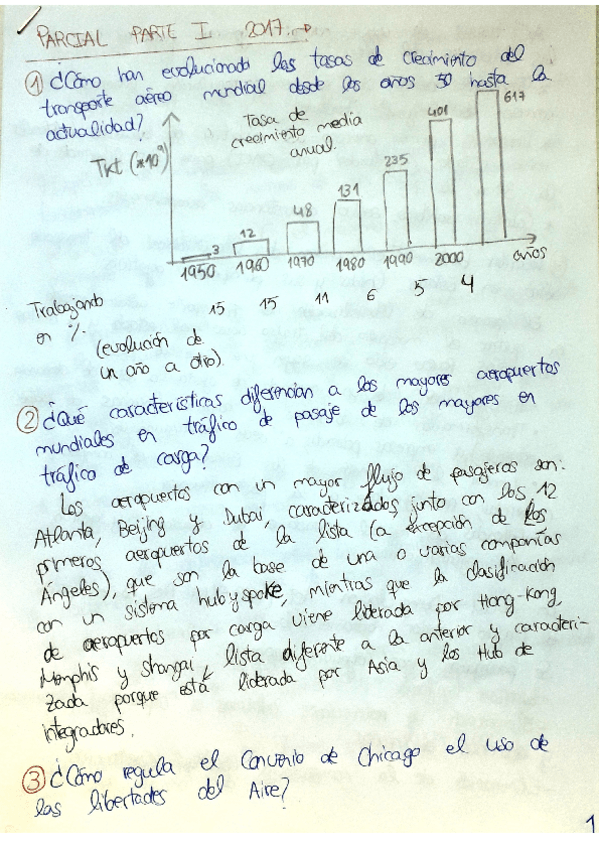 PARCIAL PARTE I 2017.→
① ¿Cómo han evolucionado las tasas de crecimiento del
transporte aéreo mundial desde los años 50 hasta la
actualidad?
Tasa de
crecimiento media
anual.
Tkt (*10⁹)
3 12 48 131 235 401 617
1950 1960 1970 1980 1990 2000 años
15 15 11 6 5 4
Trabajando
en %.
(evolución de
un año a otro).
② ¿Qué características diferencian a los mayores aeropuertos
mundiales en tráfico de pasaje de los mayores en
tráfico de carga?
Los aeropuertos con un mayor flujo de pasajeros son:
Atlanta, Beijing y Dubai, caracterizados junto con los 12
primeros aeropuertos de la lista (a excepción de Los
Ángeles), que son la base de una o varias compañías
con un sistema hub y spoke, mientras que la clasificación
de aeropuertos por carga viene liderada por Hong-Kong,
Memphis y Shangai, lista diferente a la anterior y caracteri-
zada porque está liderada por Asia y los Hub de
integradores.
③ ¿Cómo regula el Convenio de Chicago el uso de
las libertades del Aire?
1